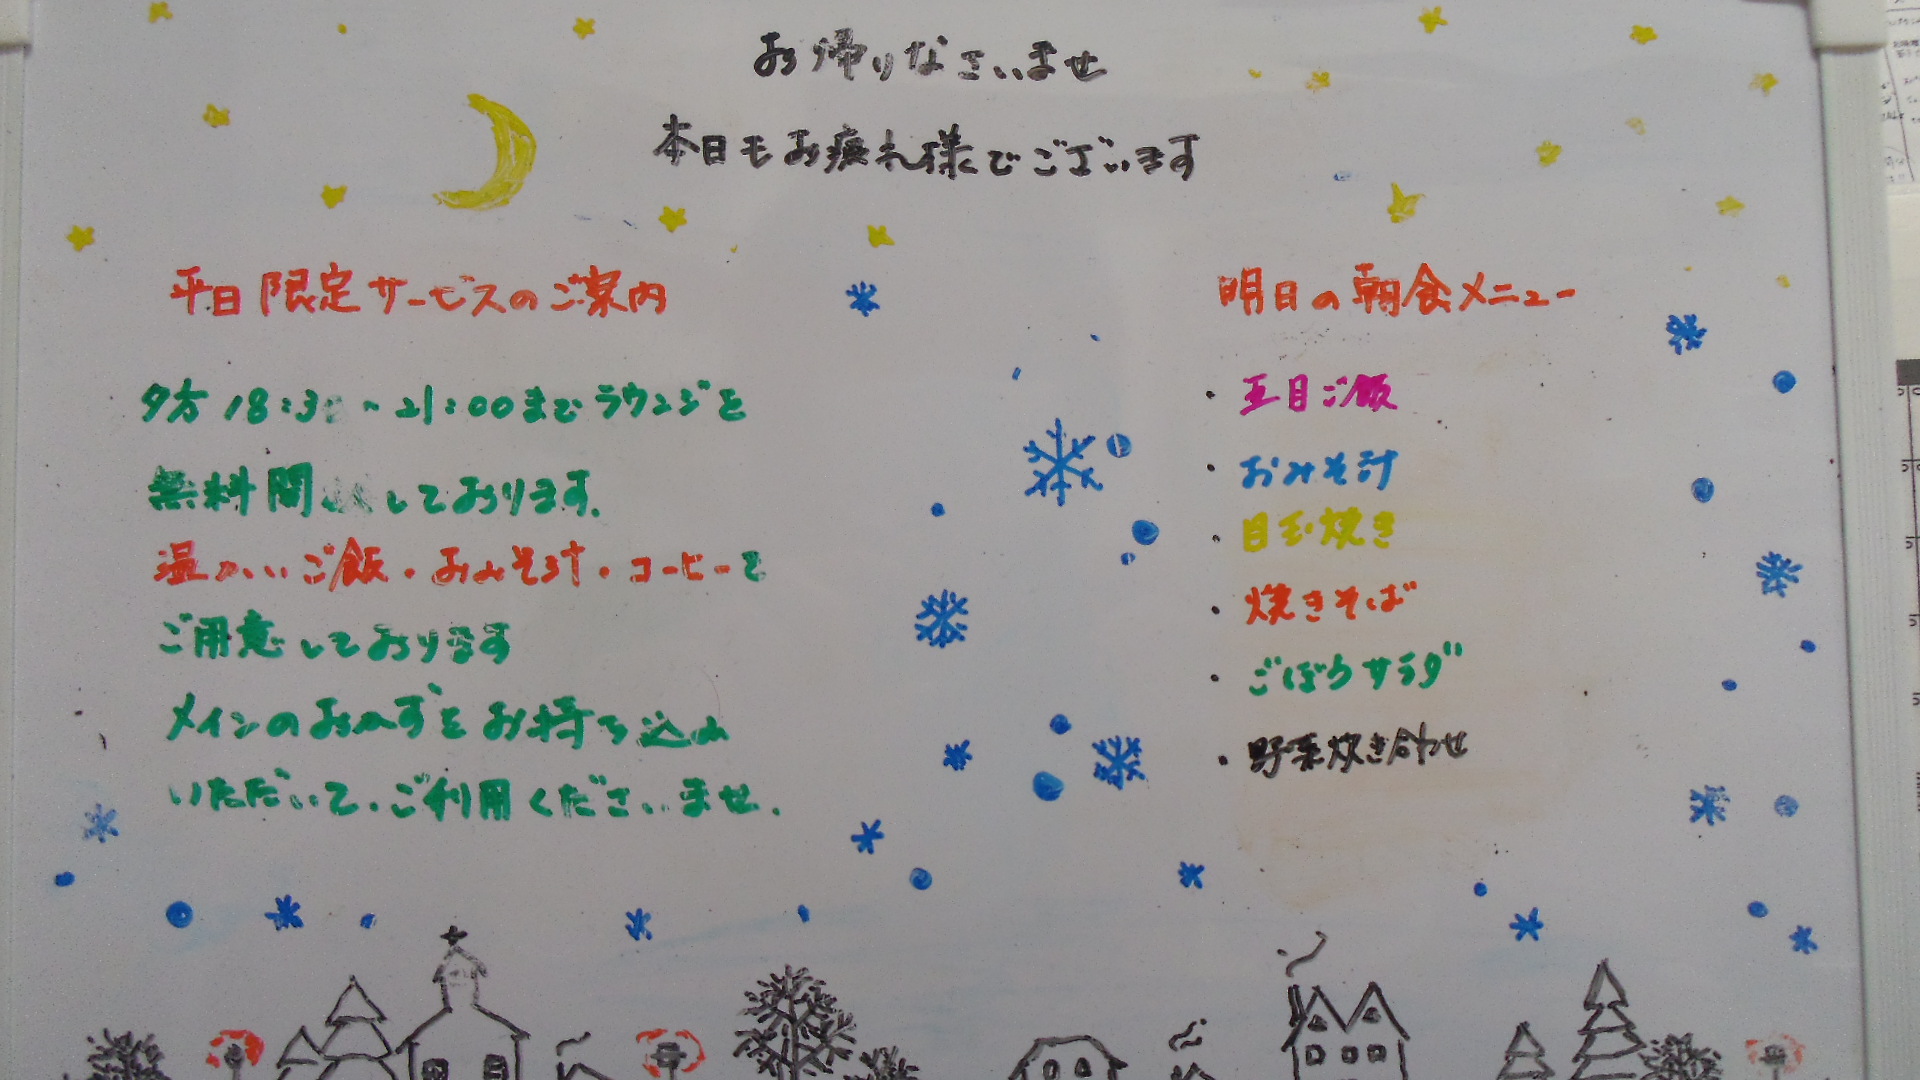 お帰りなさいませ
本日もお疲れ様でございます
平日限定サービスのご案内
夕方18:30~21:00まで ラウンジを
無料開 しております.
温かいご飯・おみそ汁・コーヒーを
ご用意しております
メインのおかずをお持ち込み
いただいて.ご利用くださいませ.
明日の朝食メニュー
・五目ご飯
・おみそ汁
・目玉焼き
・焼きそば
・ごぼうサラダ
・野菜炊き合わせ